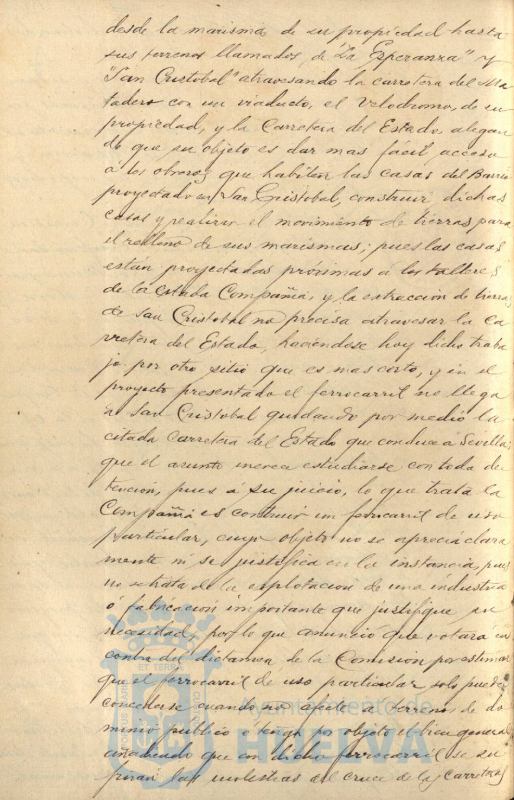 desde la marisma de su propiedad hasta
sus terrenos llamados de "La Esperanza" y
"San Cristobal" atravesando la carretera del Ma-
tadero con un viaducto, el Velodromo, de su
propiedad, y la Carretera del Estado, alegan-
do que su objeto es dar mas fácil acceso
a los obreros que habiten las casas del Barrio
proyectado en San Cristobal, construir dichas
casas y realizar el movimiento de tierras para
el relleno de sus marismas; pues las casas
están proyectadas próximas á los talleres
de la citada Compañia, y la extracción de tierras
de San Cristobal no precisa atravesar la Ca-
rretera del Estado, haciéndose hoy dicho traba-
jo por otro sitio que es mas corto, y en el
proyecto presentado el ferrocarril no llega
á San Cristobal quedando por medio la
citada Carretera del Estado que conduce a Sevilla;
que el asunto merece estudiarse con toda de-
tencion, pues á su juicio, lo que trata la
Compañia es construir un ferrocarril de uso
particular, cuyo objeto no se aprecia clara-
mente ni se justifica en la instancia, pues
no se trata de la explotacion de una industria
ó fabricacion importante que justifique su
necesidad, por lo que anunció que votará en
contra del dictamen de la Comision por estimar
que el ferrocarril de uso particular solo puede
concederse cuando no afecte a terrenos de do-
minio público o tenga por objeto el bien general
añadiendo que en dicho ferrocarril se su-
primirán las molestias del cruce de las Carreteras
ET TERRE
Ayuntamiento de
HUELVA